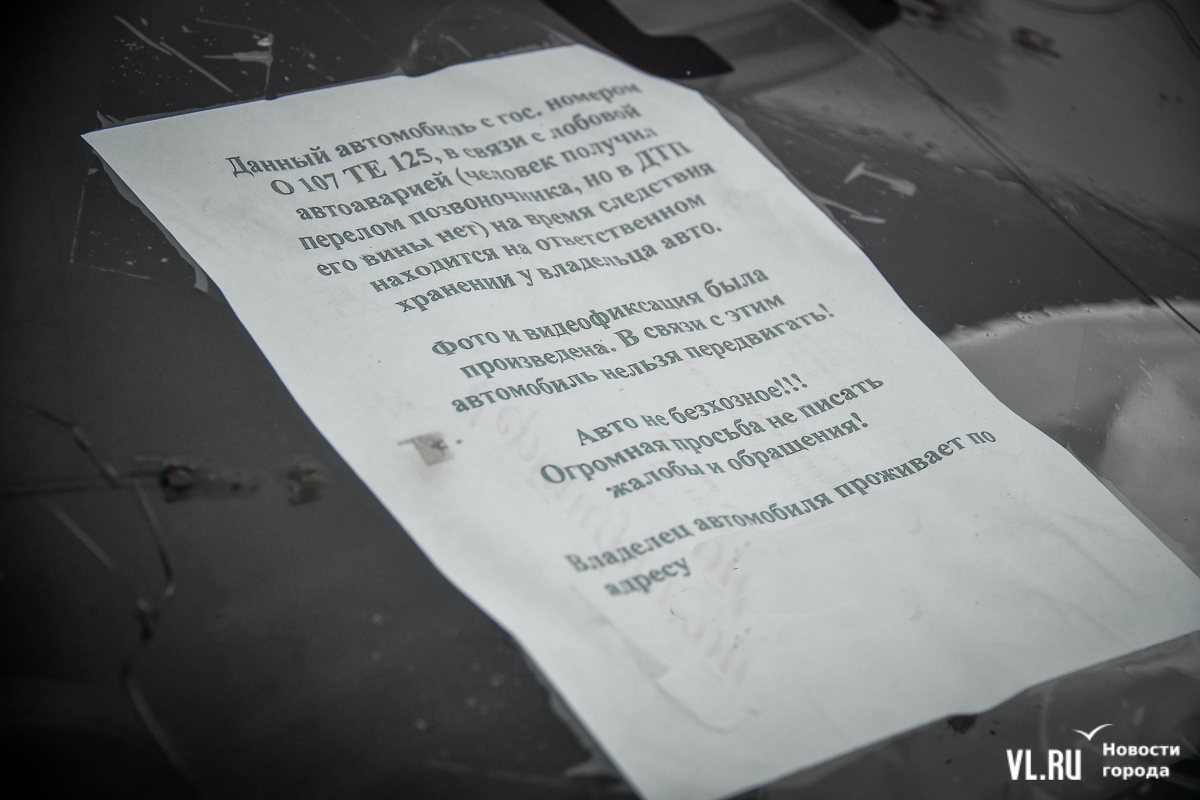 Данный автомобиль с гос. номером
О 107 ТЕ 125, в связи с лобовой
автоаварией (человек получил
перелом позвоночника, но в ДТП
его вины нет) на время следствия
находится на ответственном
хранении у владельца авто.
Фото и видеофиксация была
произведена. В связи с этим
автомобиль нельзя передвигать!
Авто не безхозное!!!
Огромная просьба не писать
жалобы и обращения!
Владелец автомобиля проживает по
адресу
VL.RU Новости
города